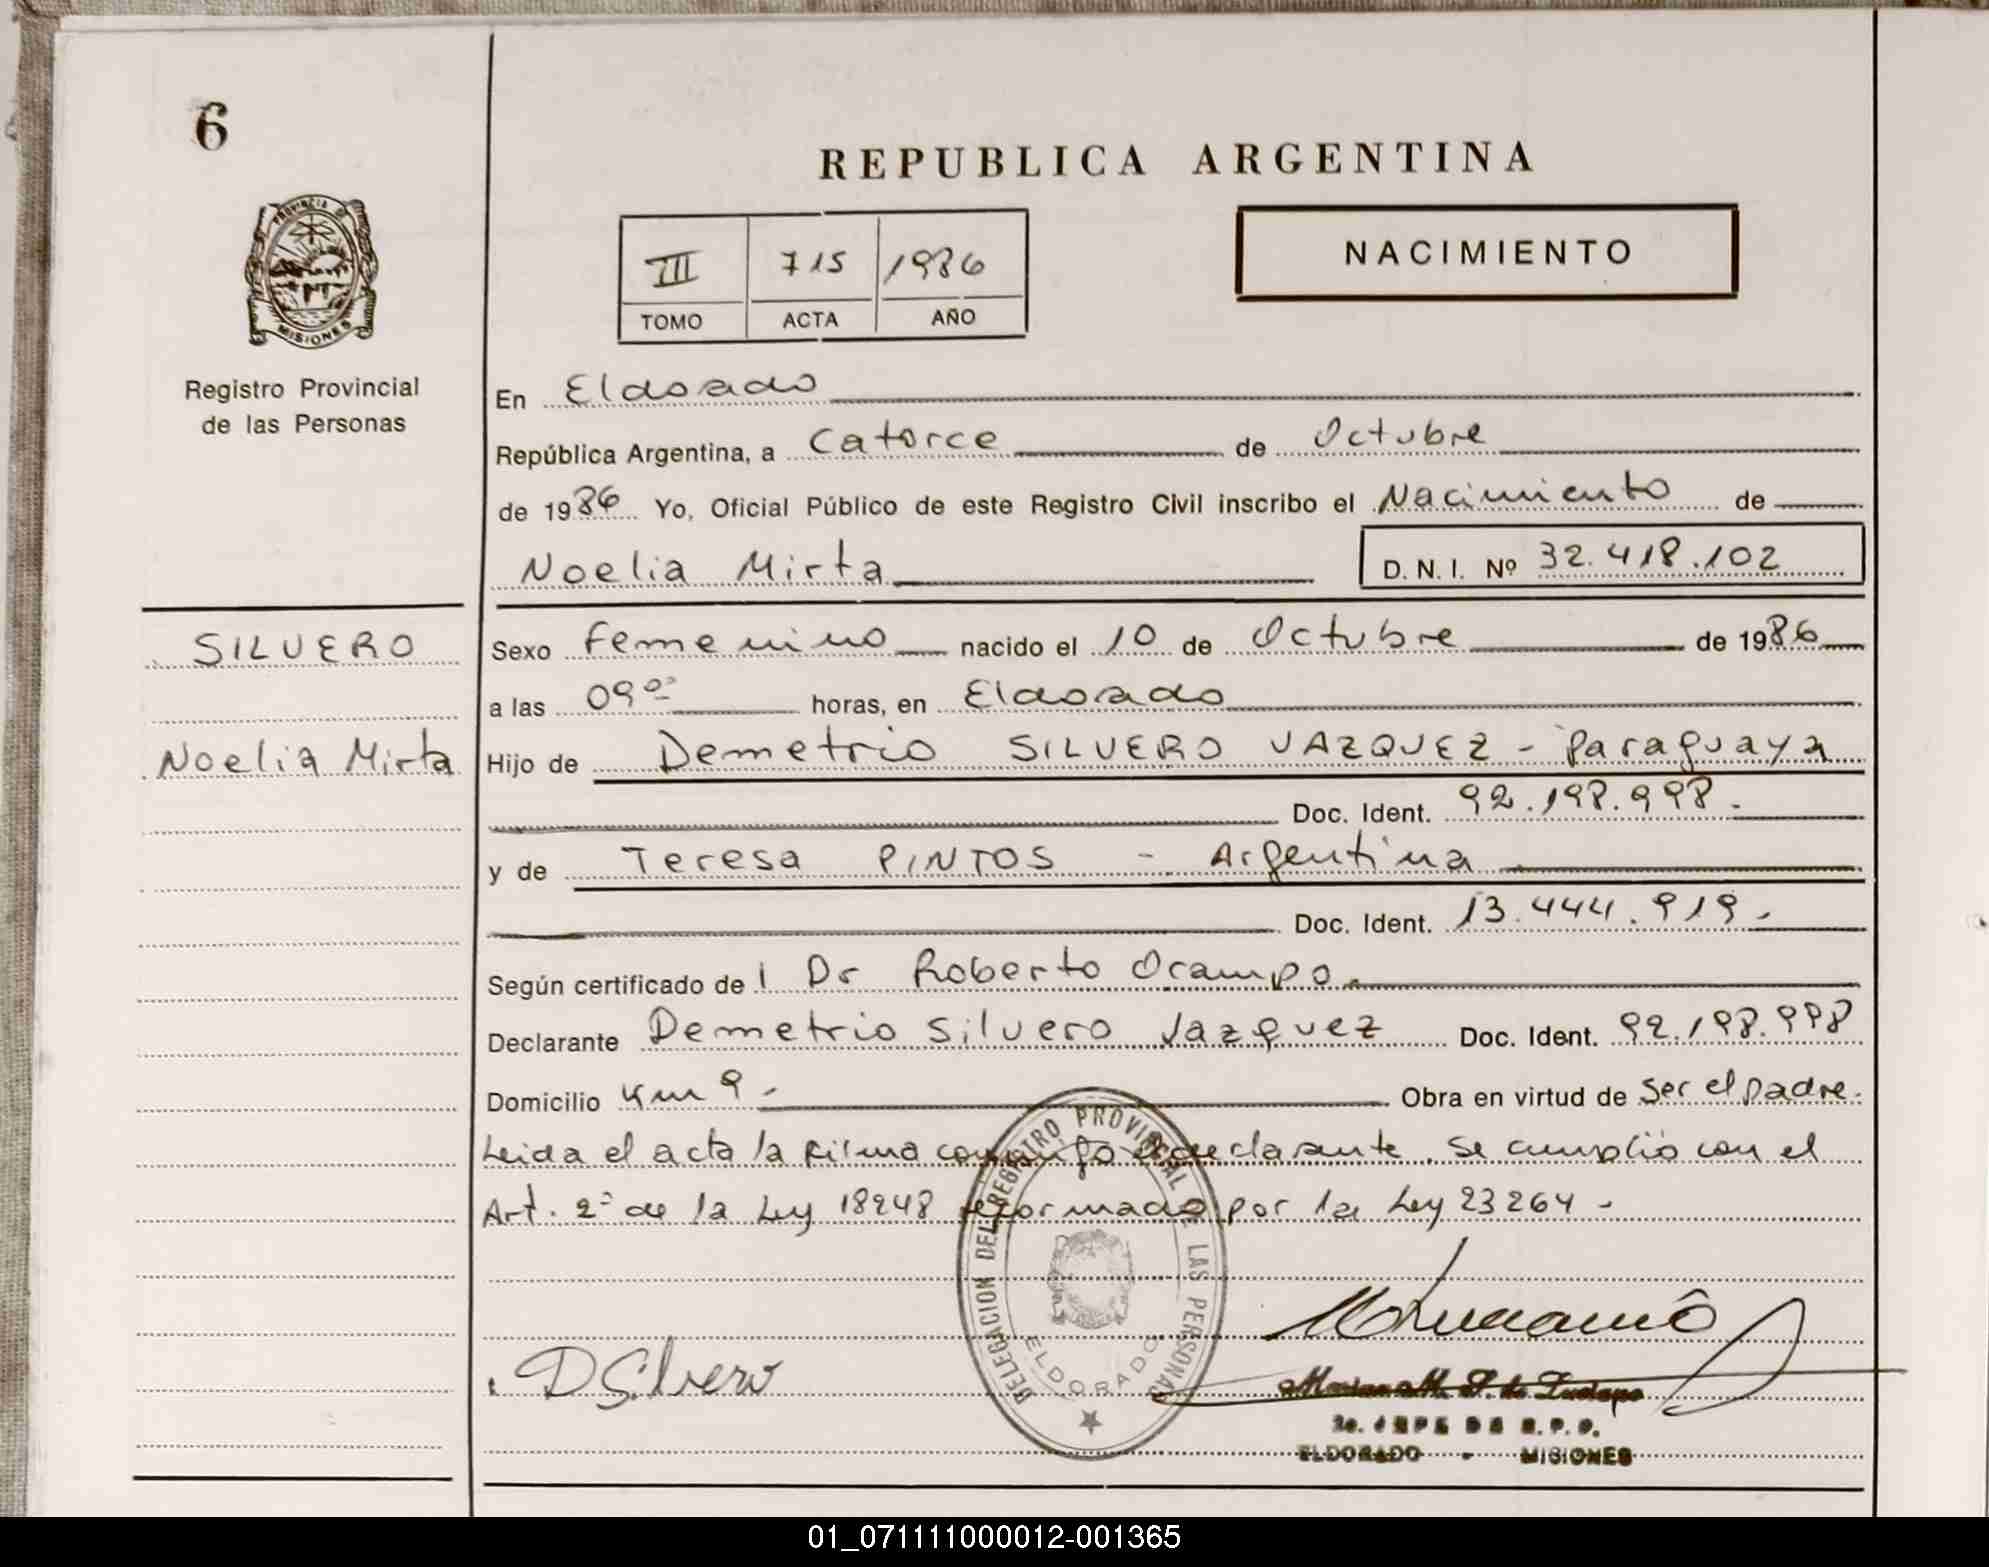 6
REPUBLICA ARGENTINA
PROVINCIA D MISIONES
III 715 1986
TOMO ACTA AÑO
NACIMIENTO
Registro Provincial
de las Personas
En Eldorado
República Argentina, a Catorce de Octubre
de 1986 Yo, Oficial Público de este Registro Civil inscribo el Nacimiento de
Noelia Mirta D. N. I. Nº 32.418.102
SILVERO
Noelia Mirta
Sexo Femenino nacido el 10 de Octubre de 1986
a las 09 horas, en Eldorado
Hijo de Demetrio SILVERO VAZQUEZ - Paraguaya
Doc. Ident. 92.198.998.
y de Teresa PINTOS - Argentina
Doc. Ident. 13.444.919.
Según certificado de l Dr Roberto Ocampo.
Declarante Demetrio Silvero Vazquez Doc. Ident. 92.198.998
Domicilio Km 9 - Obra en virtud de Ser el padre.
Leida el acta la firma conmigo el declarante. Se cumplió con el
Art. 2º de la Ley 18248 reformado por la Ley 23264 -
DELEGACION DEL REGISTRO PROVINCIAL DE LAS PERSONAS
ELDORADO
D Silvero
de Luciano
2o. JEFE DE R. P. P.
ELDORADO - MISIONES
01_071111000012-001365